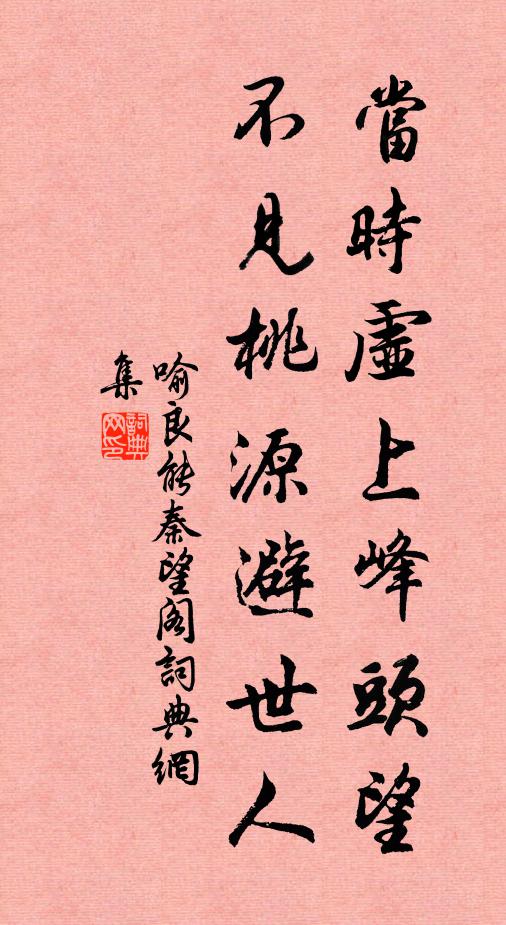 當時虛上峰頭望
不見桃源避世人
喻良能秦望閣詞典網
集
詞典
网印